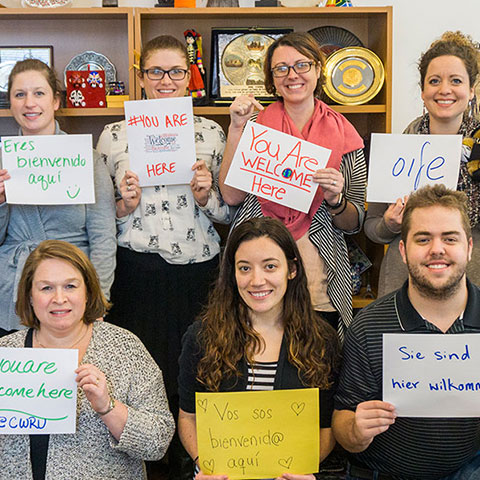 Eres
bienvenido
aquí
#YOU ARE
Welcome
HERE
You Are
WELCOME
Here
oife
You are
welcome here
@CWRU
Vos sos
bienvenid@
aquí
Sie sind
hier willkomm